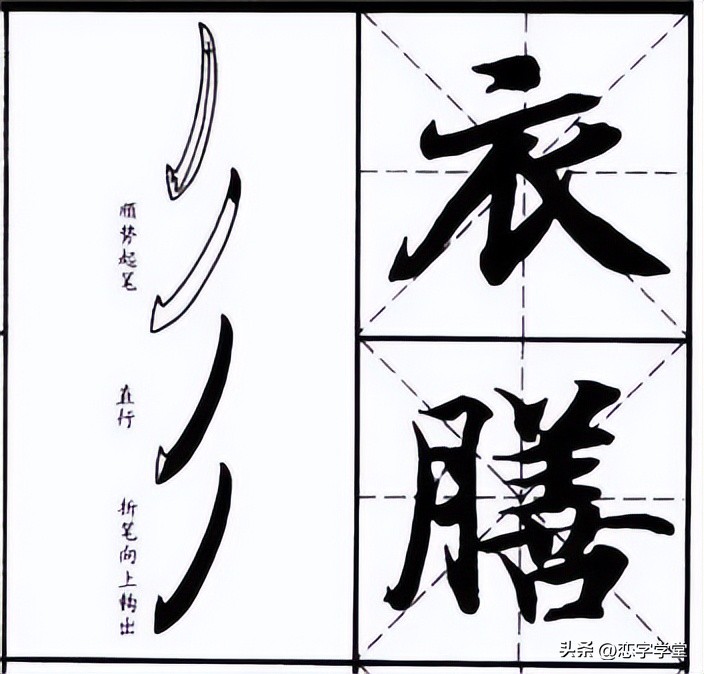 顺势起笔
直行
折笔向上钩出
衣
膳
头条 @恋字学堂